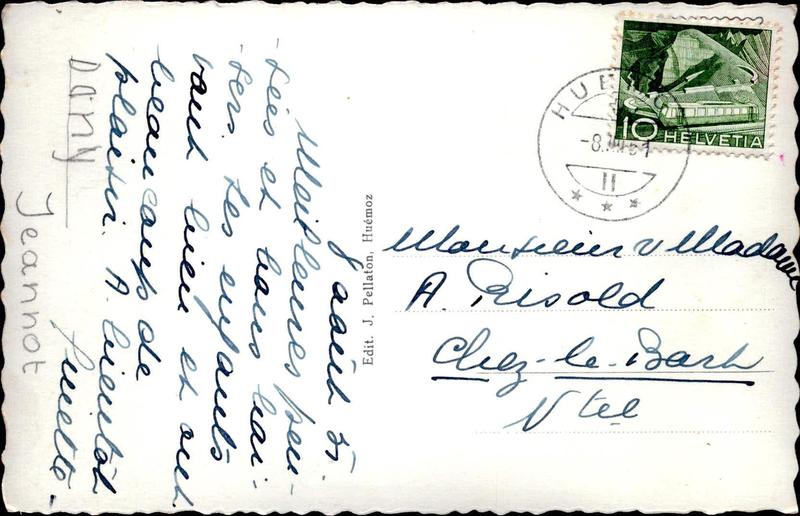 8 août 51
Meilleures pen-
-sées et bons bai-
-sers. Les enfants
vont bien et ont
beaucoup de
plaisir. A bientôt
Dany
Jeannot
Edit. J. Pellaton, Huémoz
HUÉMOZ
-8.VIII.51
II
10 HELVETIA
Monsieur & Madame
A. Risold
Chez-le-Bart
Ntel